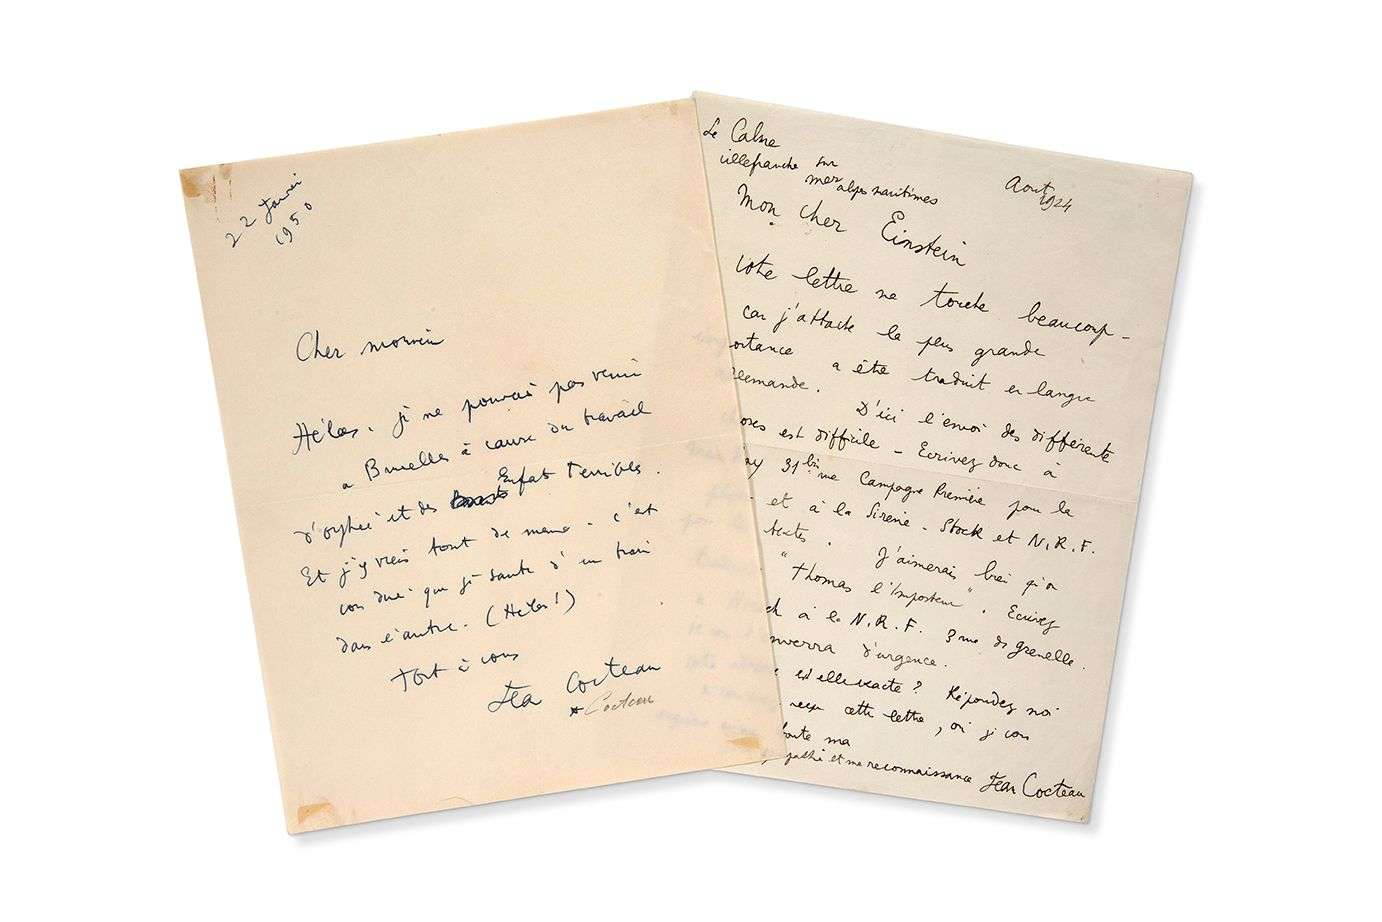 22 Janvier
1950
Cher monsieur
Hélas. je ne pouvais pas venir
a Bruxelles à cause du travail
d'orphée et des Enfats Terribles.
Et j'y viens tout de meme. c'est
vous dire que je saute d'un train
dans l'autre. (Hélas!)
tout à vous
Jean Cocteau
* Cocteau
Le Calme
villefranche sur
mer alpes maritimes
Aout
1924
Mon cher Einstein
votre lettre me touche beaucoup -
car j'attache la plus grande
ortance a être traduit en langue
lemande. D'ici l'envoi des différente
oses est difficile - Ecrivez donc à
ny 31 bis rue Campagne Première pour la
et à la Sirène - Stock et N.R.F.
textes. J'aimerais bien qu'on
"Thomas l'Imposteur". Ecrivez
ck à la N.R.F. 3 rue de grenelle.
nverra d'urgence.
e est elle exacte? Répondez moi
cette lettre, où je vous
toute ma
pathie et ma reconnaissance Jean Cocteau